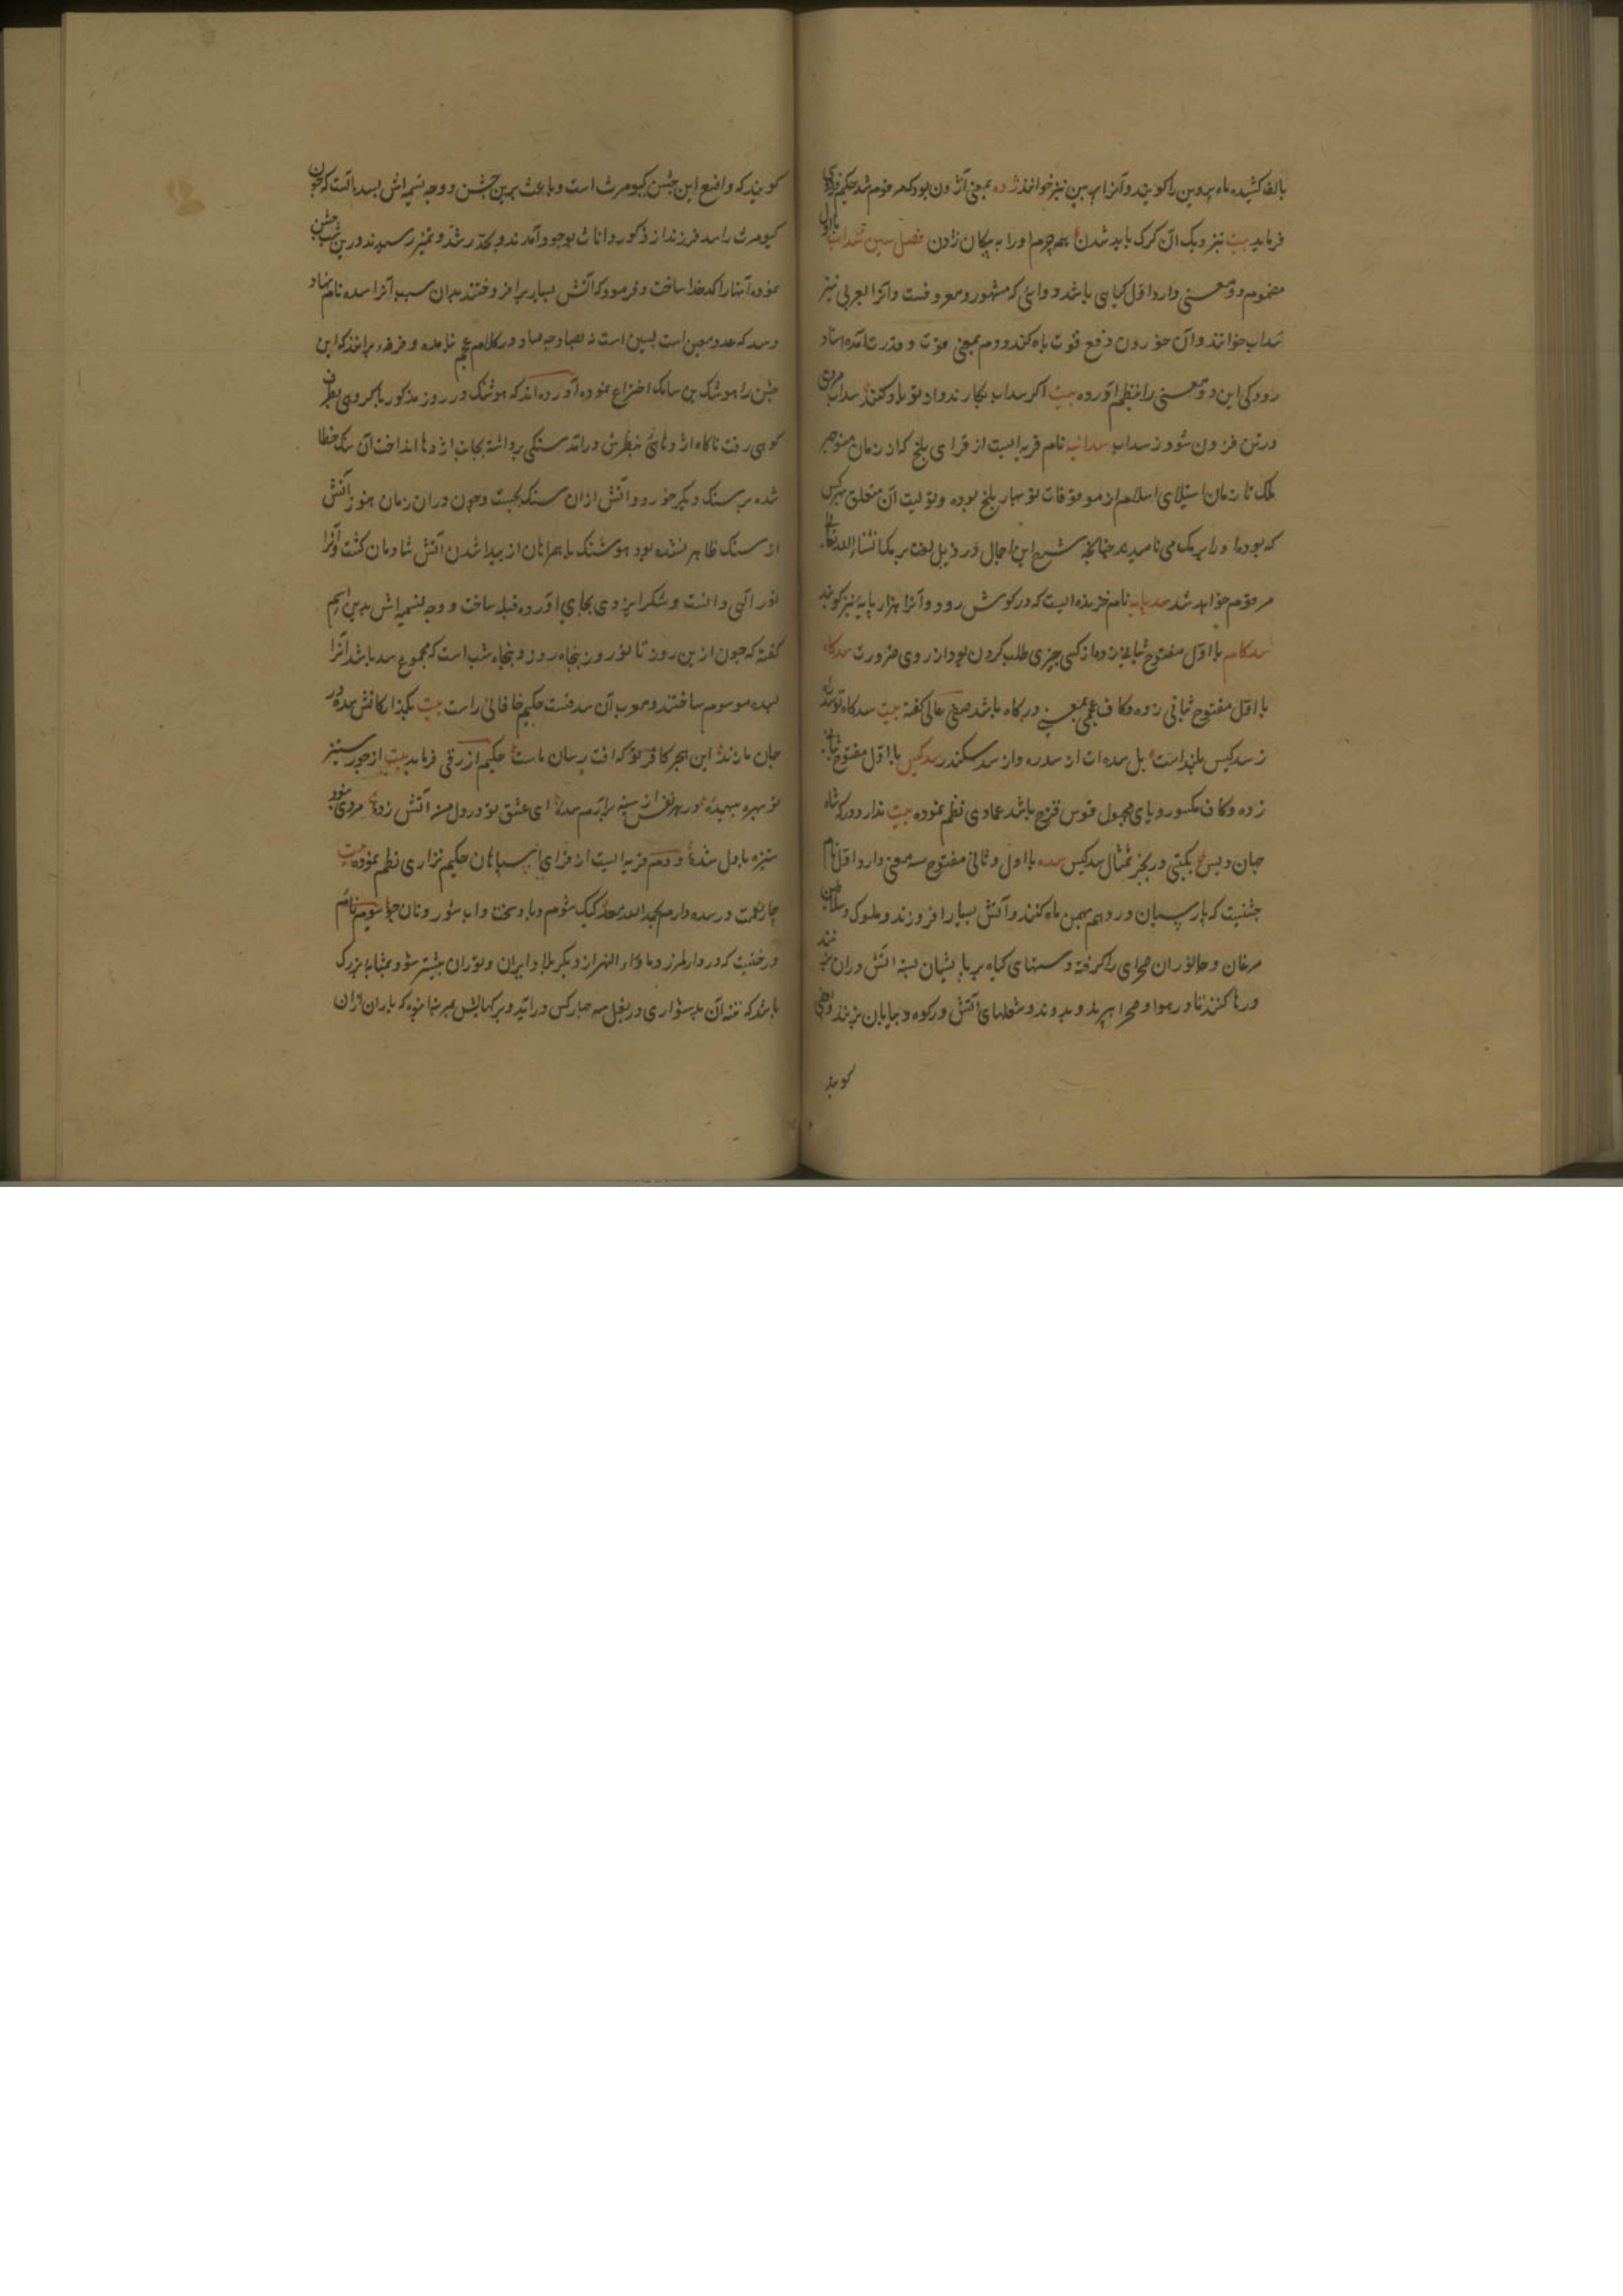 بالف کشیده ماه پروین را گویند و آنرا پرین نیز خوانند زده بمعنی آژدن بود که مرقوم شد حکیم
فرماید بیت نیز دیک آن کرک باید شدن همه چرم او را به پیکان زدن فصل سین سداب با اول
مضموم دو معنی دارد اول کیاهی باشد دوایی که مشهور و معروفست و آنرا بعربی نیز
سداب خوانند و آن خوردن دفع قوت باه کند دوم بمعنی قوت و قدرت آمده استاد
رودکی این دو معنی را بنظم آورده بیت اکر سداب بکارند و از تو یاد کنند سداب مردی
در تن فزون شود ز سداب سدانه نام قریه ایست از قرای بلخ که از زمان منوچهر
ملک تا زمان استیلای اسلام از موقوفات نوبهار بلخ بوده و تولیت آن متعلق بهرکس
که بوده او را برمک می نامیدند چنانچه شرح این اجمال در ذیل لغت برمک انشاء الله تعالی
مرقوم خواهد شد سدپایه نام خزنده ایست که در کوش رود و آنرا هزار پایه نیز کویند
سدکام با اول مفتوح بثانی زده از کسی چیزی طلب کردن بود از روی ضرورت سدکاه
با اول مفتوح بثانی زده و کاف عجمی بمعنی درکاه باشد عالی کفته بیت سدکاه تو
ز سدکیس بلند است بل سده ات از سدره و از سد سکندر سدکیس با اول مفتوح بثانی
زده و کاف مکسور و یای مجهول قوس قزح باشد عمادی نظم نموده بیت ندارد در که شاه
جهان دیس بکیتی در بجز تمثال سدکیس سده با اول و ثانی مفتوح سه معنی دارد اول نام
جشنیست که پارسیان در دهم بهمن ماه کنند و آتش بسیار افروزند و ملوک و سلاطین
مرغان و جانوران صحرای را کرفته و دستهای کیاه بر پای ایشان بسته آتش در آن زنند
و رها کنند تا در هوا و صحرا بپرند و بدوند و شعلهای آتش در کوه و بیابان بزنند و بعضی
کویند
کویند که واضع این جشن کیومرث است و باعث برین جشن و وجه تسمیه اش بسده آنست که چون
کیومرث را سد فرزند از ذکور و اناث بوجود آمدند و بحد رشد و تمیز رسیدند درین شب جشن
نموده آنها را کدخدا ساخت و فرمود که آتش بسیار برافروختند بدان سبب آنرا سده نام نهاد
و سد که عدد معین است بسین است نه بصاد چه صاد در کلام عجم نیامده و فرقه برانند که این
جشن را هوشنک بن سیامک اختراع نموده آورده اند که هوشنک در روز مذکور با کروهی بطرف
کوهی رفت ناکاه اژدهائی بنظرش درآمد سنکی برداشته بجانب اژدها انداخت آن سنک خطا
شده بر سنک دیکر خورد و آتش از آن سنک بجست و چون در آن زمان هنوز آتش
از سنک ظاهر نشده بود هوشنک با همراهان از پیدا شدن آتش شادمان کشت و آنرا
نور الهی دانست و شکر ایزدی بجای آورده قبله ساخت و وجه تسمیه اش بدین اسم
کفته که چون ازین روز تا نوروز پنجاه روز و پنجاه شب است که مجموع سد باشد آنرا
بسده موسوم ساختند و معرب آن سدقست حکیم خاقانی راست بیت بکذار کاتش سده در
جان ما زند این هجر کافر تو که آفت رسان ماست حکیم ازرقی فرماید بیت از جور ستیز
تو بهره بیهده در هر نفس از سینه برآرم سده ای عشق تو در دل من آتش زده مردی نبود
ستیزه با دل شده و دوم قریه ایست از قرای سپاهان حکیم نزاری نظم نموده بیت
چار نعمت در سده دارم بحمد الله معد کیک شوم و باد سخت و آب شور و نان جو سیوم نام
درختیست که در دارلمرز و ما وراء النهر از دیکر بلاد ایران و توران بیشتر شود و بمثابه بزرک
باشد که تنه آن بدشواری در بغل سه چار کس درآید و برکهایش بمرتبه انبوه که باران ازان